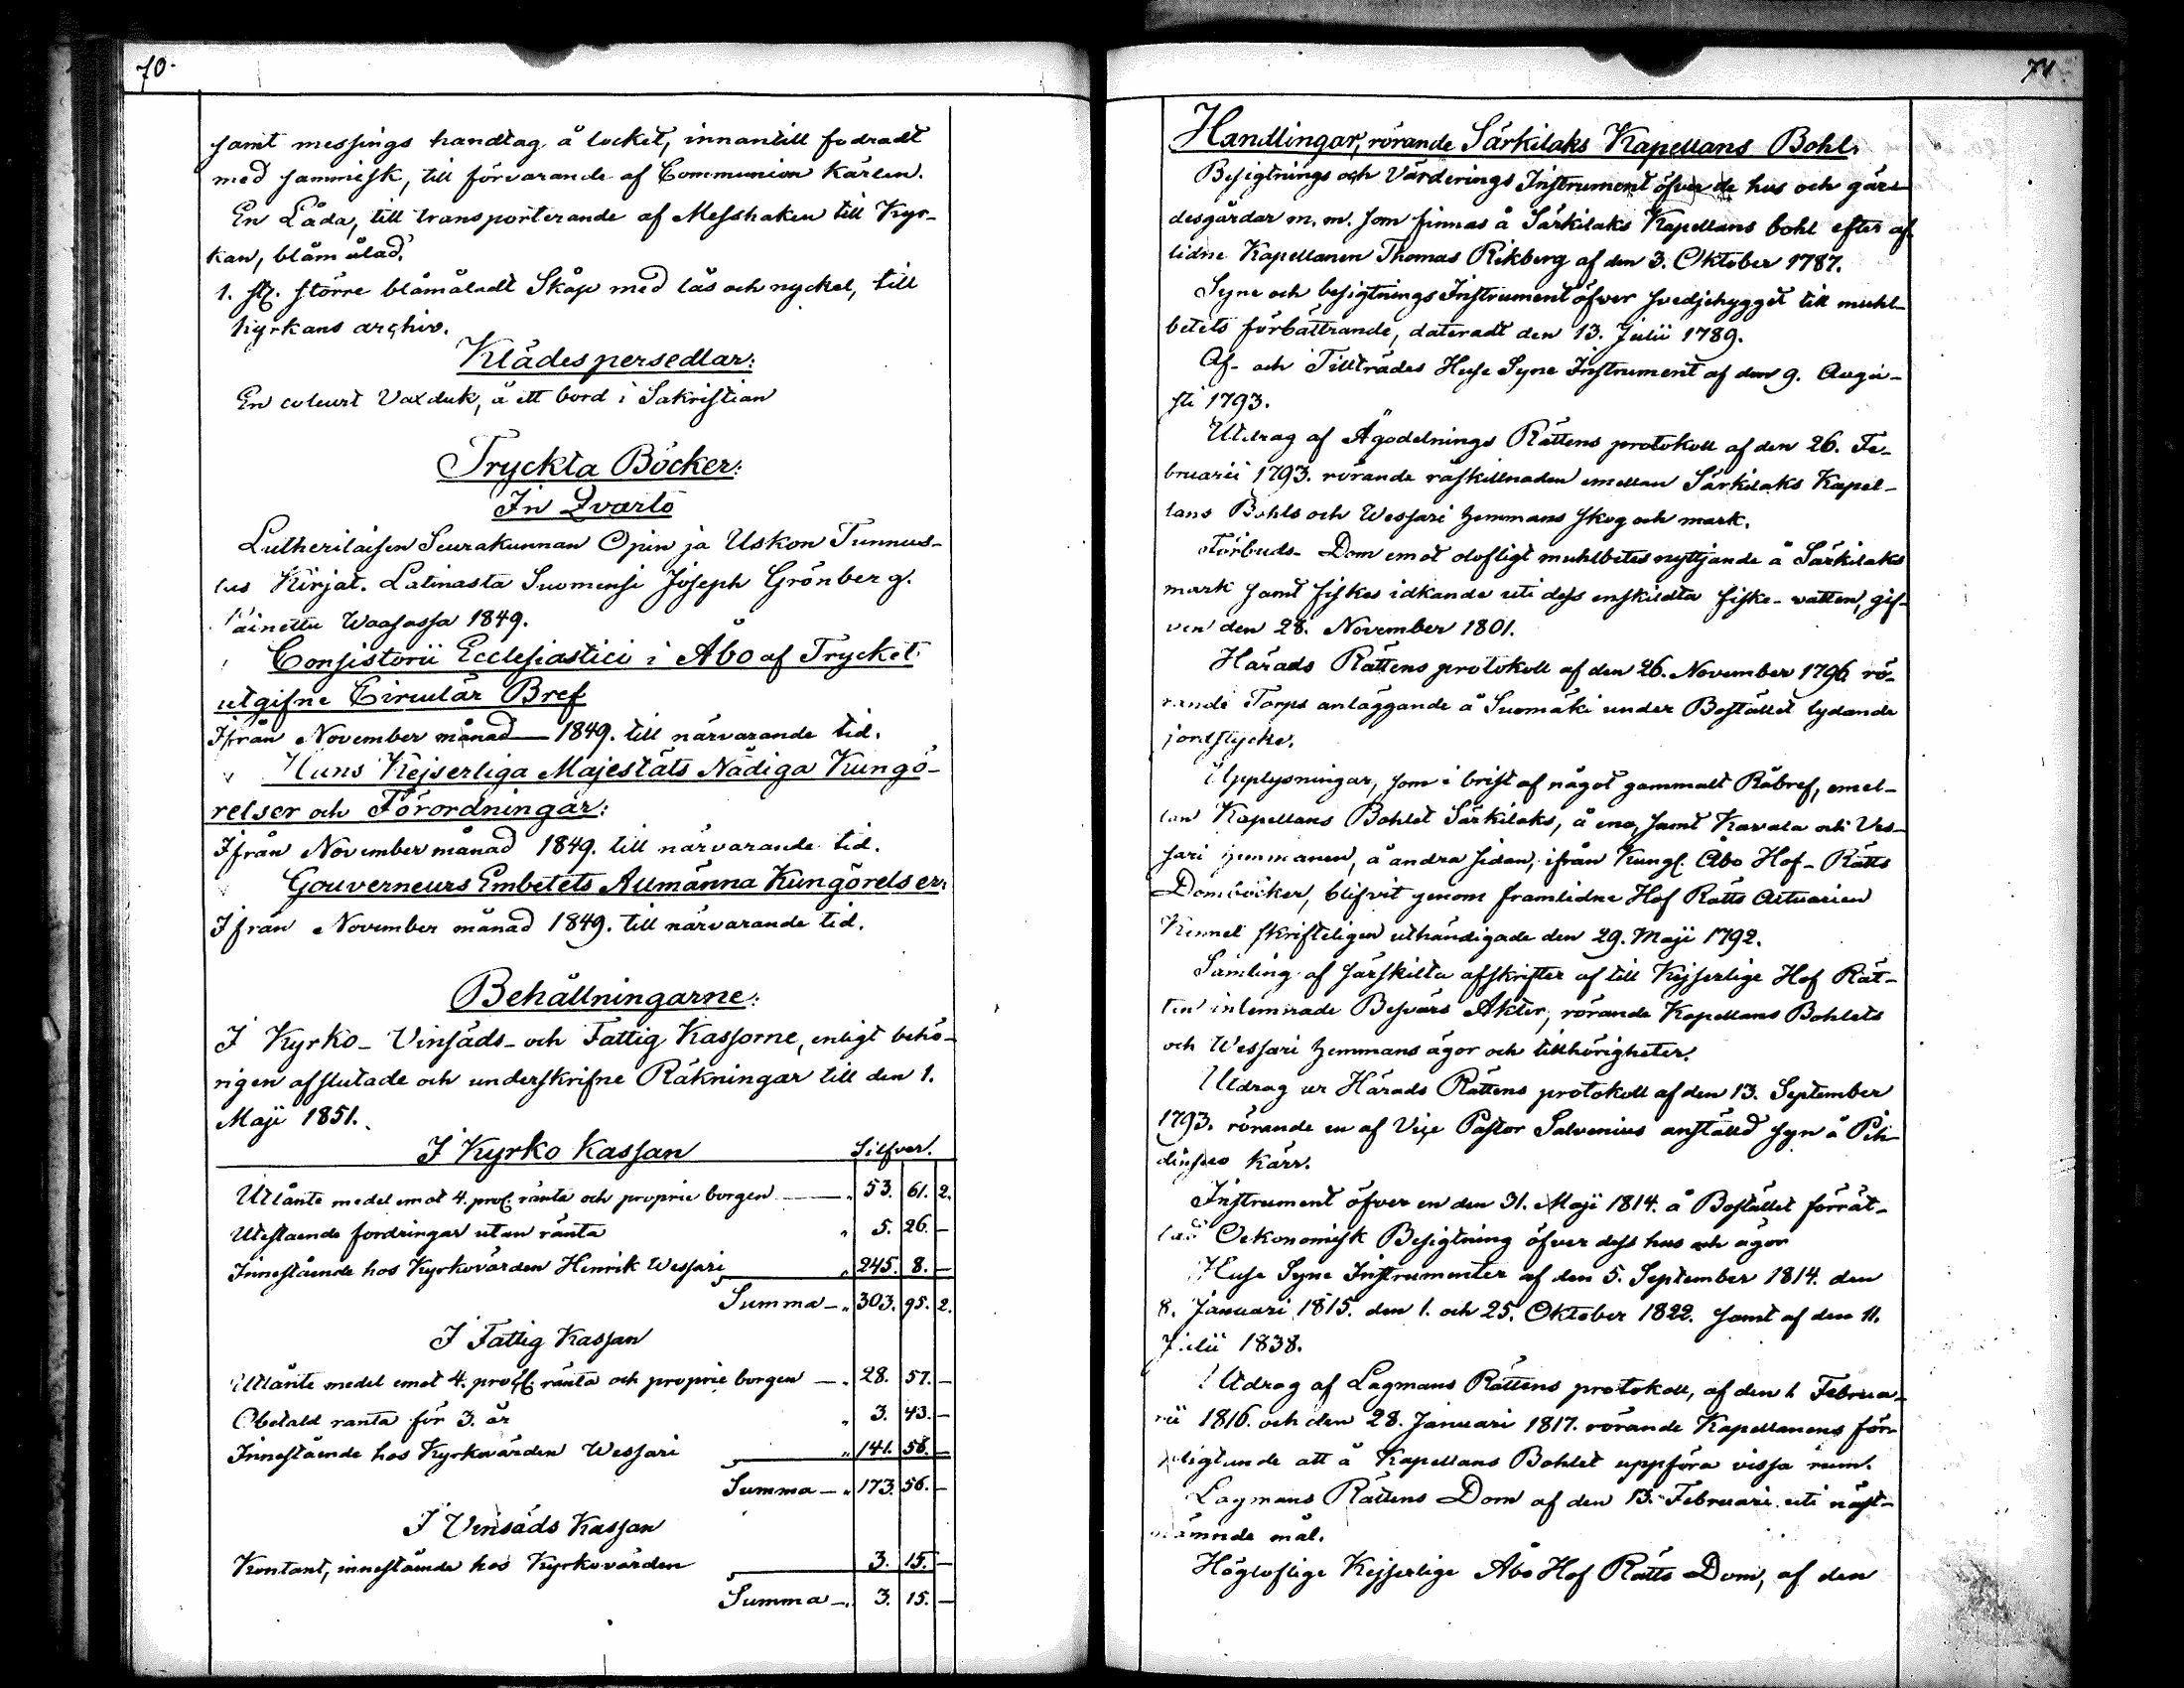 70.
samt messings handtag å locket, innantill fodradt
med sammisk, till förvarande af Communion Kärlen.
En Låda, till transporterande af Messhaken till Kyr-
kan, blåmålad.
1. st. större blåmåladt Skåp med lås och nyckel, till
Kyrkans archiv.
Klädespersedlar:
En coleurt Vaxduk, å ett bord i Sakristian
Tryckta Böcker:
In Qvarto
Lutherilaisen Seurakunnan Opin ja Uskon Tunnus-
tus Kirjat. Latinasta Suomensi Joseph Grönberg.
Painettu Waasassa 1849.
Consistorii Ecclesiastici i Åbo af Trycket
utgifne Circulär Bref
Ifrån November månad 1849. till närvarande tid.
Hans Kejserliga Majestäts Nådiga Kungö-
relser och Förordningar:
Ifrån November månad 1849. till närvarande tid.
Gouverneurs Embetets Allmänna Kungörelser:
Ifrån November månad 1849. till närvarande tid.
Behållningarne:
I Kyrko- Vinsäds- och Fattig Kassorne, enligt behö-
rigen afslutade och underskrifne Räkningar till den 1.
Maji 1851.
I Kyrko Kassan Silfver.
Utlånte medel emot 4. proC. ränta och proprie borgen — „ 53. 61. 2.
Utestaende fordringar utan ränta „ 5. 26. —
Innestående hos Kyrkovärden Henrik Wessari „ 245. 8. —
Summa — „ 303. 95. 2.
I Fattig Kassan
Utlånte medel emot 4. proC. ränta och proprie borgen — „ 28. 57. —
Obetald ranta för 3. år „ 3. 43. —
Innestående hos Kyrkovärden Wessari „ 141. 56. —
Summa — „ 173. 56. —
I Vinsäds Kassan
Kontant, innestående hos Kyrkovärden 3. 15. —
Summa —. 3. 15. —
71
Handlingar, rörande Särkilaks Kapellans Bohl.
Besigtnings och Värderings Instrument öfver de hus och gär-
desgårdar m. m. som finnas å Särkilaks Kapellans bohl efter af-
lidne Kapellanen Thomas Rikberg af den 3. Oktober 1787.
Syne och besigtnings Instrument öfwer svedjehygget till muhl-
betets förbättrande, dateradt den 13. Julii 1789.
Af- och Tillträdes Huse Syne Instrument af den 9. Augu-
sti 1793.
Utdrag af Ägodelnings Rättens protokoll af den 26. Fe-
bruarii 1793. rörande råskillnaden emellan Särkilaks Kapel-
lans Bohls och Wessari hemmans skog och mark.
Förbuds- Dom emot olofligt muhlbetes nyttjande å Särkilaks
mark samt fiskes idkande uti dess enskildta fiske-vatten, gif-
ven den 28. November 1801.
Härads Rättens protokoll af den 26. November 1796 rö-
rande Torps anläggande å Suomäki under Bostället lydande
jordstycke.
Upplysningar, som i brist af något gammalt Råbref, emel-
lan Kapellans Bohlet Särkilaks, å ena, samt Kavala och Ves-
sari hemmanen, å andra sidan, ifrån Kungl. Åbo Hof-Rätts
Domböcker, blifvit genom framlidne Hof Rätts Actuarien
skrifteligen uthändigade den 29. Maji 1792.
Samling af särskilta afskrifter af till Kejserlige Hof Rät-
ten inlemnade Besvärs Akter, rörande Kapellans Bohlets
och Wessari hemmans ägor och tillhörigheter.
Utdrag ur Härads Rättens protokoll af den 13. September
1793. rörande en af Vice Pastor Salvenius anställd syn å
Kärr.
Instrument öfver en den 31. Maji 1814. å Bostället förrät-
tad Oekonomisk Besigtning öfver dess hus och ägor
Huse Syne Instrumenter af den 5. September 1814. den
8. Januari 1815. den 1. och 25. Oktober 1822. samt af den 11.
Julii 1838.
Utdrag af Lagmans Rättens protokoll, af den 1 Februa-
rii 1816. och den 28. Januari 1817. rörande Kapellanens för-
pligtande att å Kapellans Bohlet uppföra vissa rum.
Lagmans Rättens Dom af den 13. Februari uti näst-
nämnde mål.
Högloflige Kejserlige Åbo Hof Rätts Dom, af den